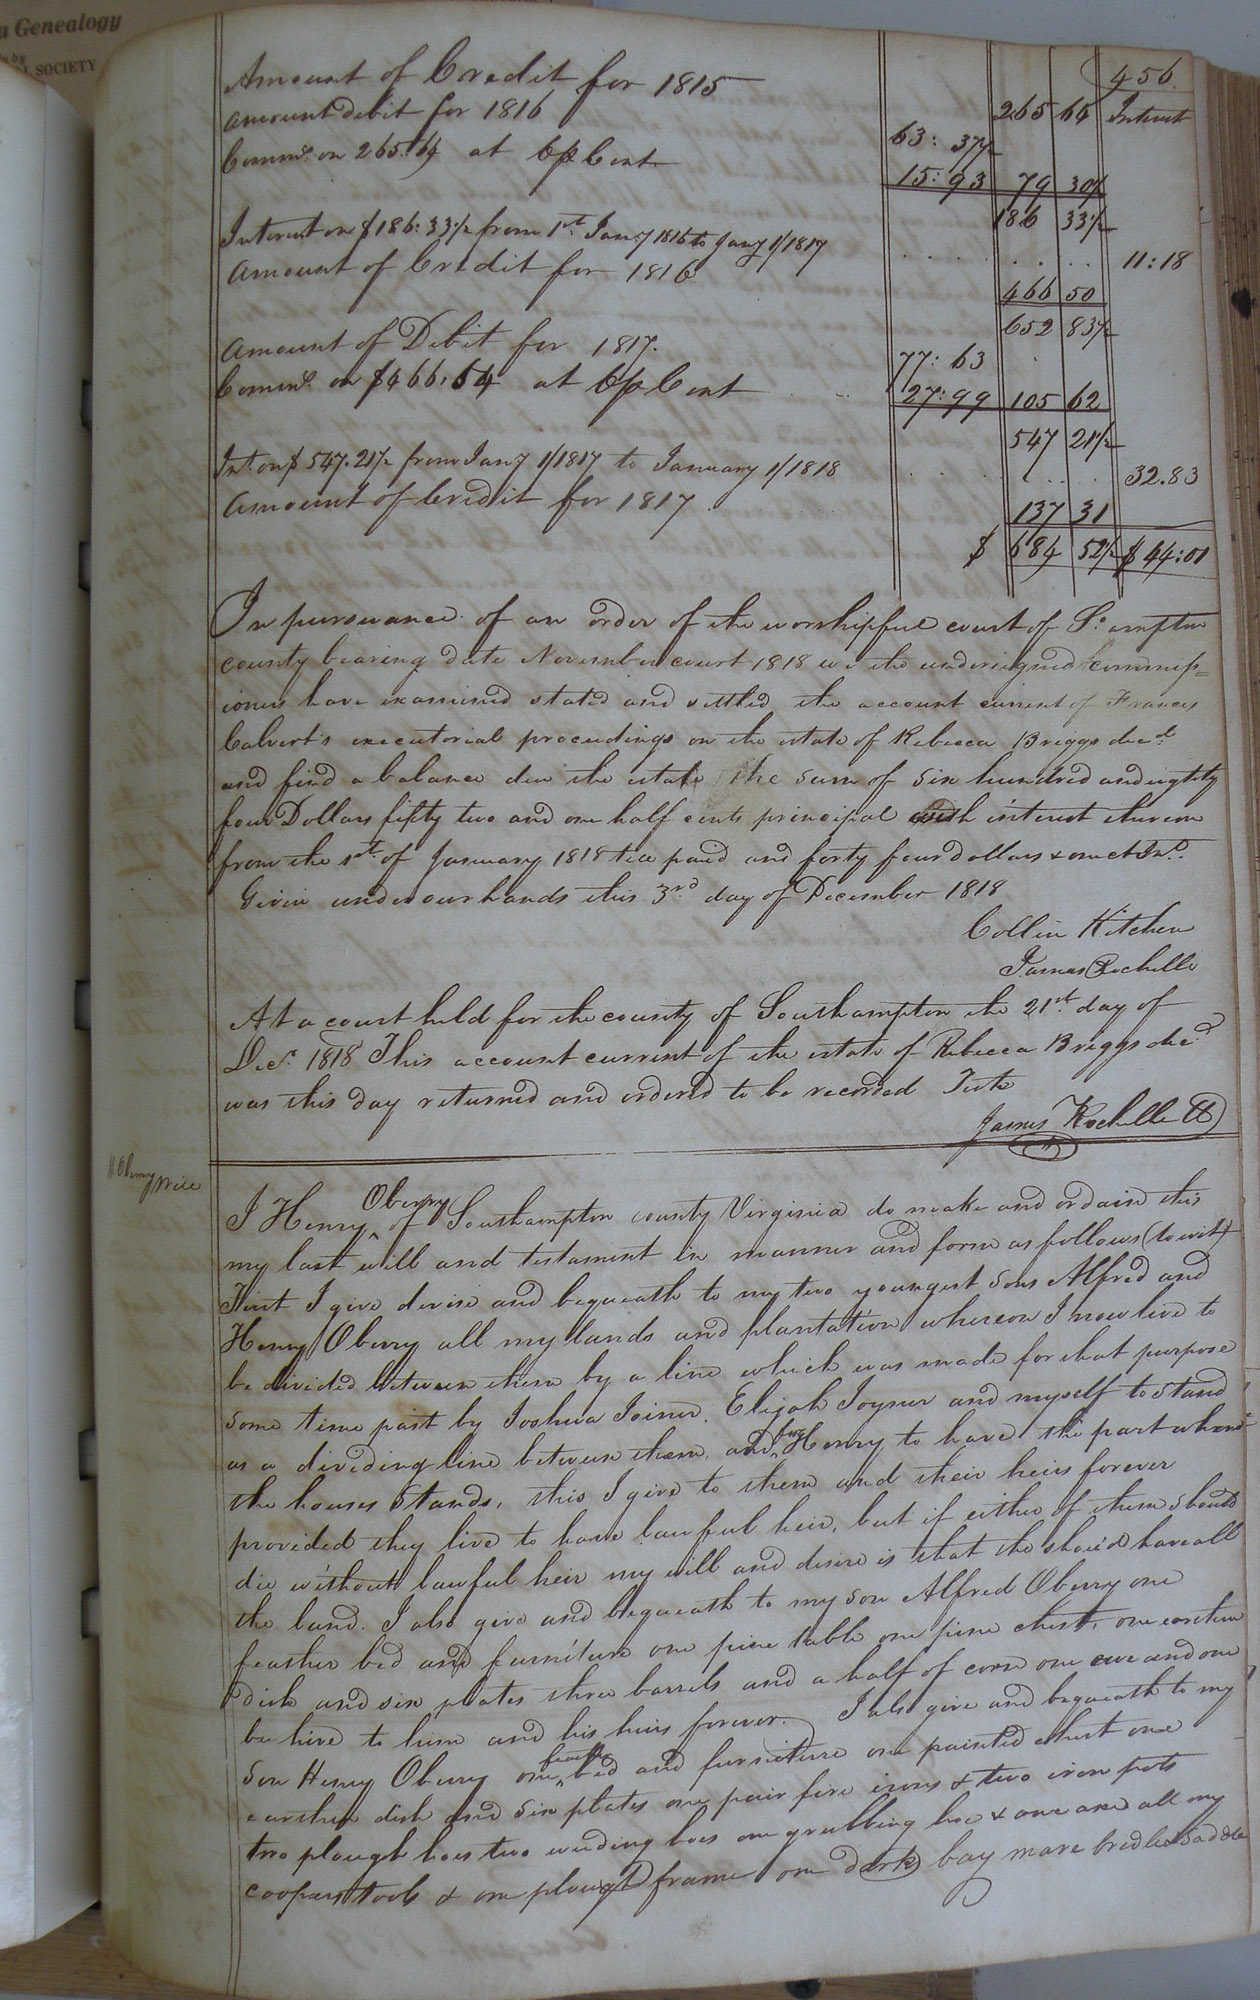 a Genealogy
by
SOCIETY
456
Amount of Credit for 1815 265 64 Interest
Amount debit for 1816 63: 37½
Commns. on 265.64 at 6 pr Cent 15: 93 79 30½
186 33½
Interest on $186:33½ from 1st Jany 1816 to Jany 1/1817 11:18
Amount of Credit for 1816 466 50
652 83½
Amount of Debit for 1817. 77: 63
Commns. on $466.54 at 6 pr Cent 27:99 105 62
547 21½
Int. on $547.21½ from Jany 1/1817 to January 1/1818 32.83
Amount of Credit for 1817 137 31
$ 684 52½ $44:01
In pursuance of an order of the worshipful court of So. ampton
county bearing date November court 1818 we the undersigned commiss=
ioners have examined stated and settled the account current of Francis
Calvert's executorial proceedings on the estate of Rebecca Briggs decd.
and find a balance due the estate the sum of six hundred and eighty
four Dollars fifty two and one half cents principal with interest thereon
from the 1st. of January 1818 till paid and forty four dollars & one ct Int.
Given under our hands this 3rd day of December 1818
Collin Kitchen
James Rochelle
At a court held for the county of Southampton the 21st. day of
Decr. 1818 This account current of the estate of Rebecca Briggs decd.
was this day returned and ordered to be recorded Teste
James Rochelle Ck
H Oberry Will
I Henry Oberry of Southampton county Virginia do make and ordain this
my last will and testament in manner and form as follows (to wit)
First I give devise and bequeath to my two youngest sons Alfred and
Henry Oberry all my lands and plantation whereon I now live to
be divided between them by a line which was made for that purpose
some time past by Joshua Joiner, Elijah Joyner and myself to stand
as a dividing line between them, and for Henry to have the part where
the houses stands, this I give to them and their heirs forever
provided they live to have lawful heir, but if either of them should
die without lawful heir my will and desire is that the other should have all
the land. I also give and bequeath to my son Alfred Oberry one
feather bed and furniture one pine table one pine chest, one earthen
dish and six plates three barrels and a half of corn one ewe and one
bee hive to him and his heirs forever. I also give and bequeath to my
son Henry Oberry one feather bed and furniture one painted chest one
earthen dish and six plates one pair fire irons & two iron pots
two plough hoes two weeding hoes one grubbing hoe & one axe all my
coopers tools & one plough frame one dark bay mare bridle & saddle